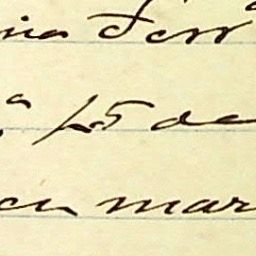 nia Ferr
a 15 de
en mar